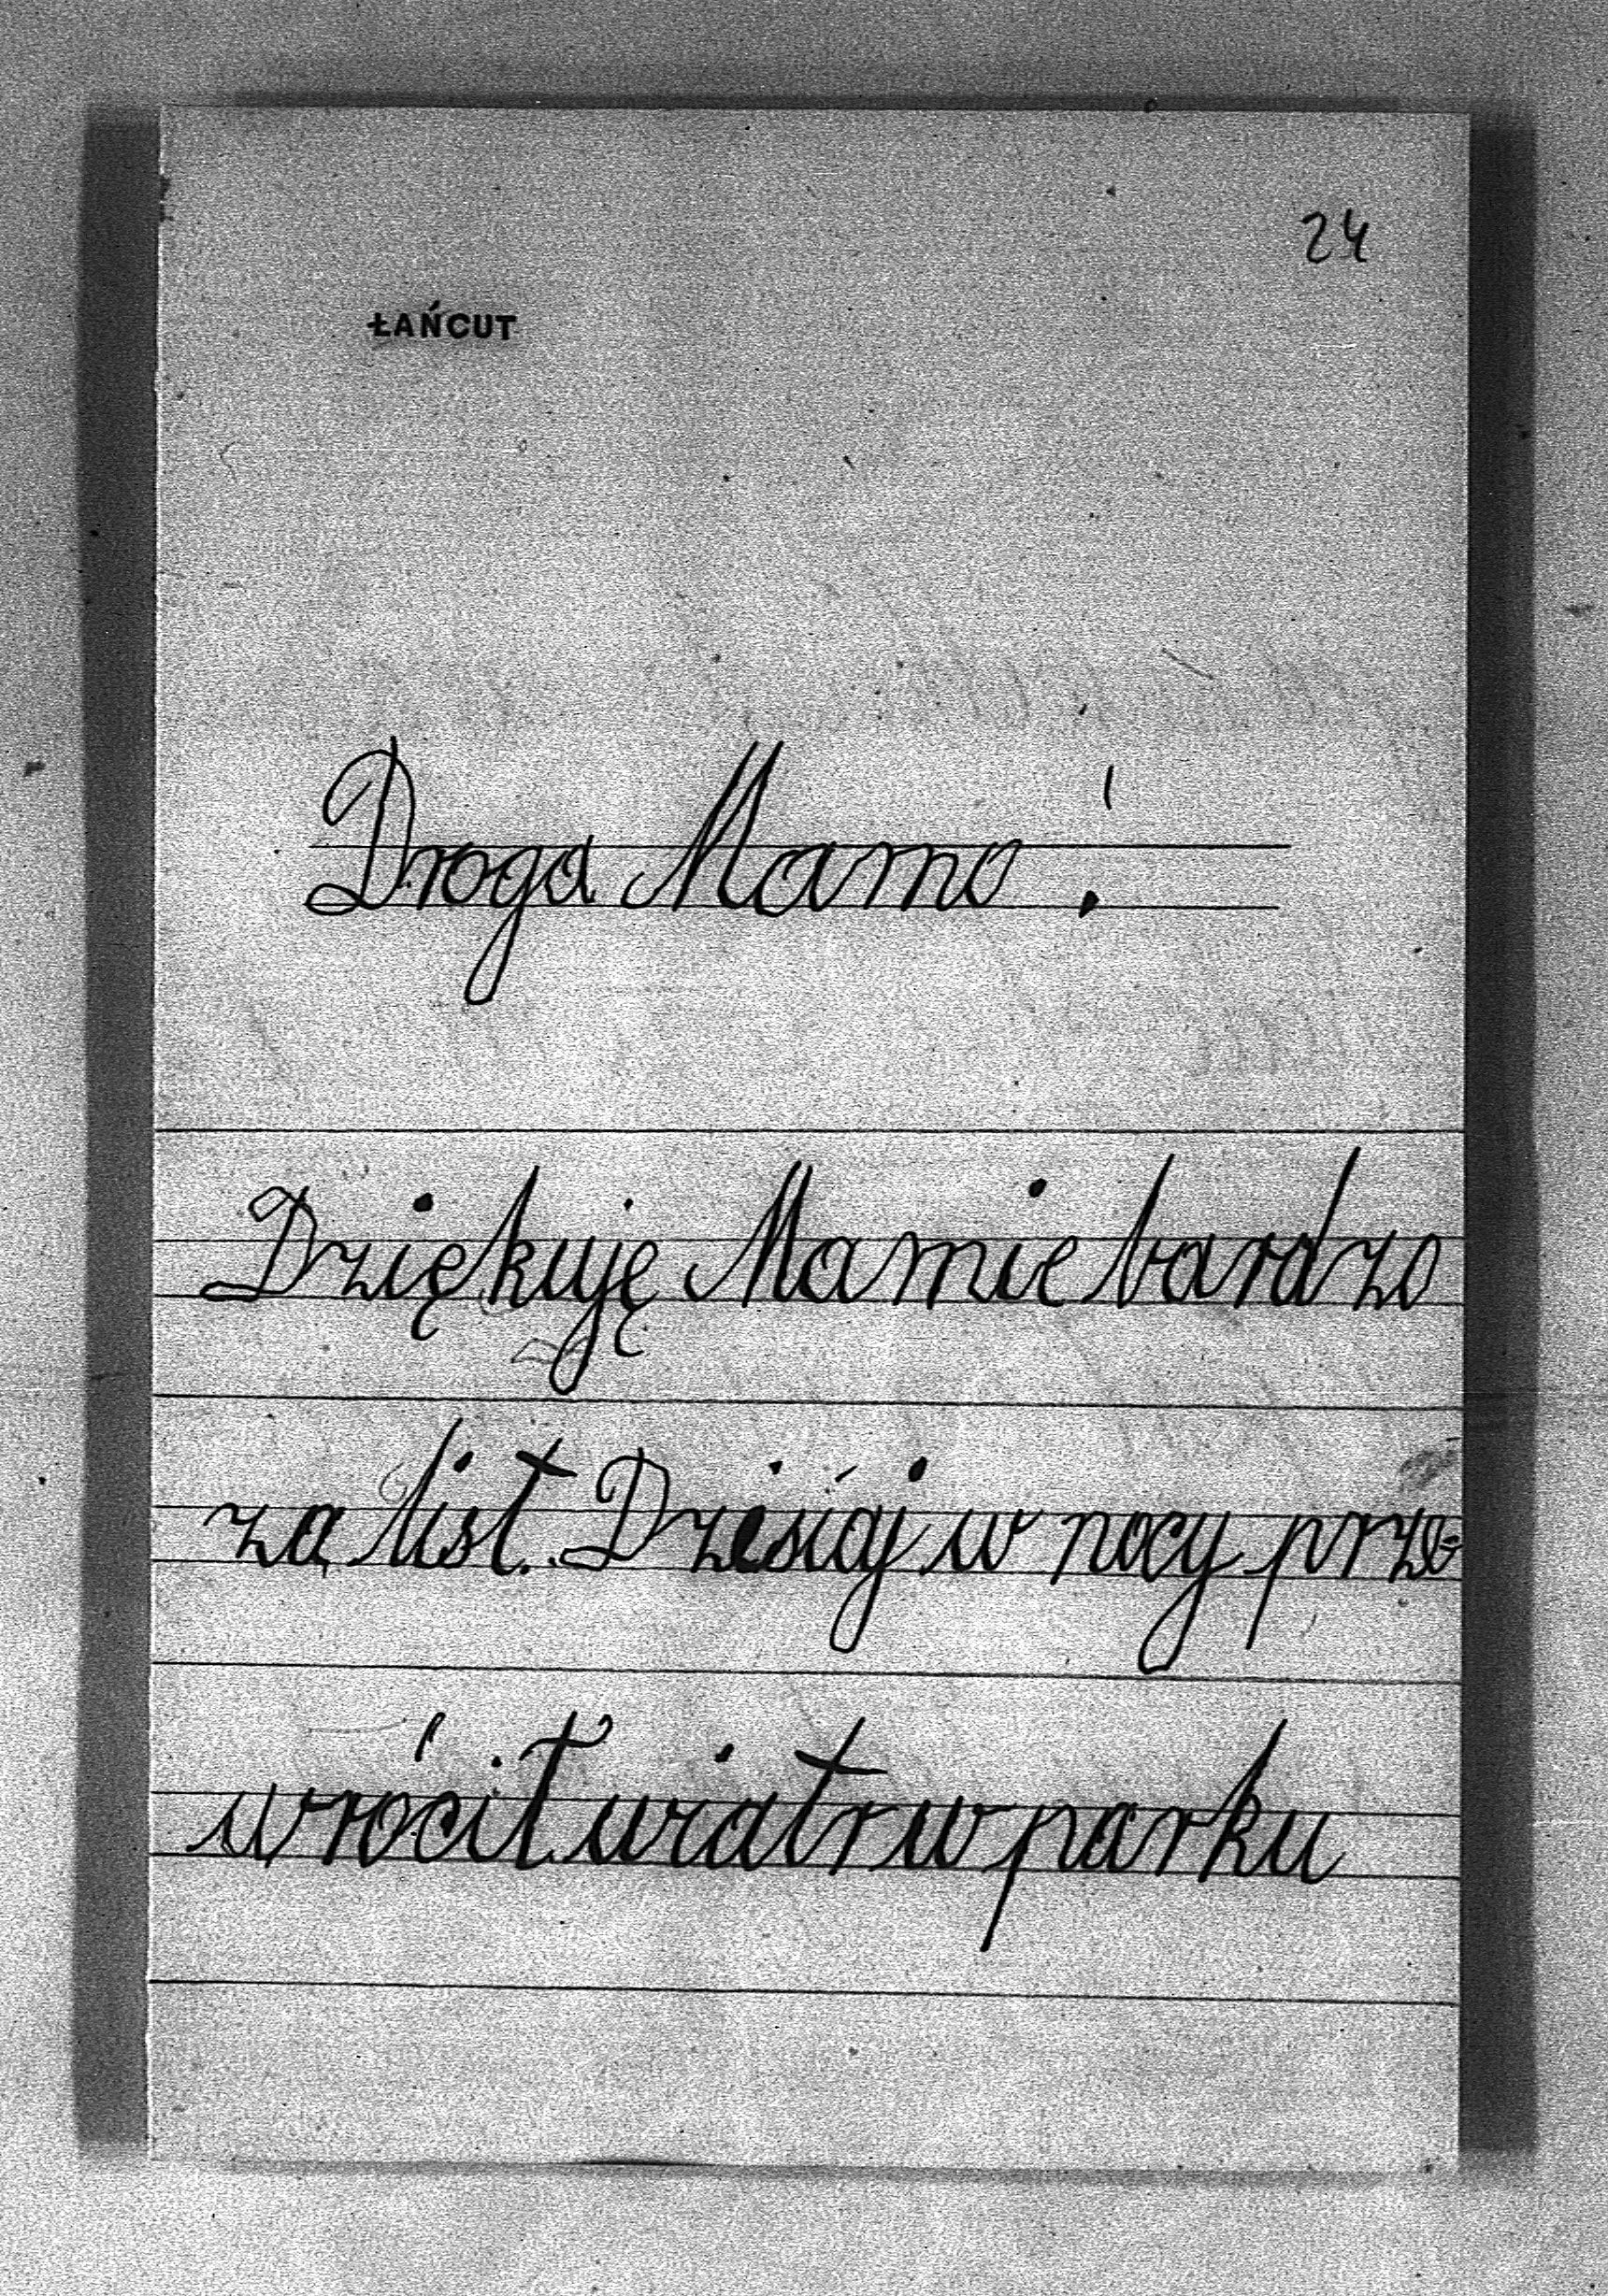 24
ŁAŃCUT
Droga Mamo!
Dziękuję Mamie bardzo
za list. Dzisiaj w nocy prze-
wrócił wiatr w parku